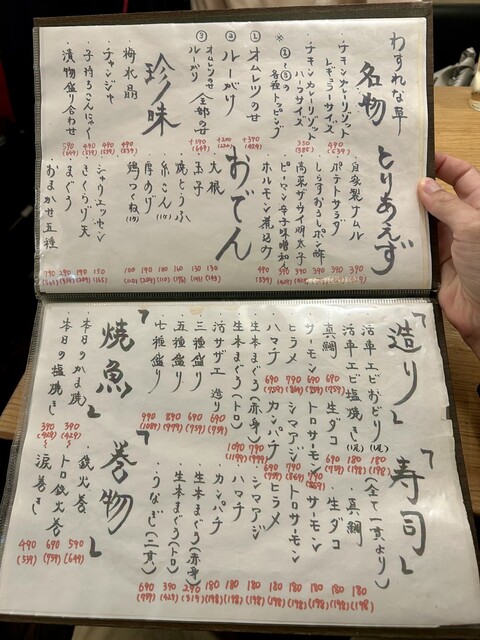 わすれな草
名物
・チキンカレーリゾット
レギュラーサイズ
490
(539)
・チキンカレーリゾット
ハーフサイズ
350
(385)
※①〜③の
各種トッピング
① オムレツのせ
+390
(429)
② ルーがけ
+200
③ オムレツのせ
ルーがけ
全部のせ
+590
(649)
珍味
・梅水晶
490
(539)
・チャンジャ
490
(539)
・子持ちこんにゃく
490
(539)
・漬物盛り合わせ
590
(649)
とりあえず
・自家製ナムル
・ポテトサラダ
390
・しらすおろしポン酢
390
・高菜ザーサイ明太子
390
・ピーマン辛子味噌和え
・ホルモン煮込み
490
(539)
おでん
・大根
130
(143)
・玉子
130
・焼とうふ
160
・糸こん(1ヶ)
180
・厚あげ
190
・鶏つくね(1ヶ)
100
(110)
・シャウエッセン
150
(165)
・きくらげ天
190
(209)
・まぐろ
290
(319)
・おまかせ五種
790
「造り」
・活車エビおどり(1尾)
180
(198)
・活車エビ塩焼き(1尾)
180
(198)
・真鯛
690
(759)
・サーモン
690
(759)
・ヒラメ
790
(869)
・ハマチ
690
(759)
・生本まぐろ(赤身)
・生本まぐろ(トロ)
1090
(1199)
・活サザエ 造り
690
(759)
・三種盛り
690
(759)
・五種盛り
890
(979)
・七種盛り
990
(1089)
・生ダコ
690
(759)
・トロサーモン
790
(869)
・シマアジ
790
(869)
・カンパチ
690
(759)
「焼魚」
・本日のかま焼
390
(429)
〜
・本日の塩焼き
390
(429)
〜
「寿司」
(全て一貫より)
・真鯛
180
(198)
・生ダコ
180
(198)
・サーモン
180
(198)
・トロサーモン
180
(198)
・ヒラメ
180
(198)
・シマアジ
180
(198)
・ハマチ
180
(198)
・カンパチ
180
(198)
・生本まぐろ(赤身)
290
(319)
・生本まぐろ(トロ)
390
(429)
・うなぎ(二貫)
690
(759)
「巻物」
・鉄火巻
590
(649)
・トロ鉄火巻
690
(759)
・涙巻き
490
(539)